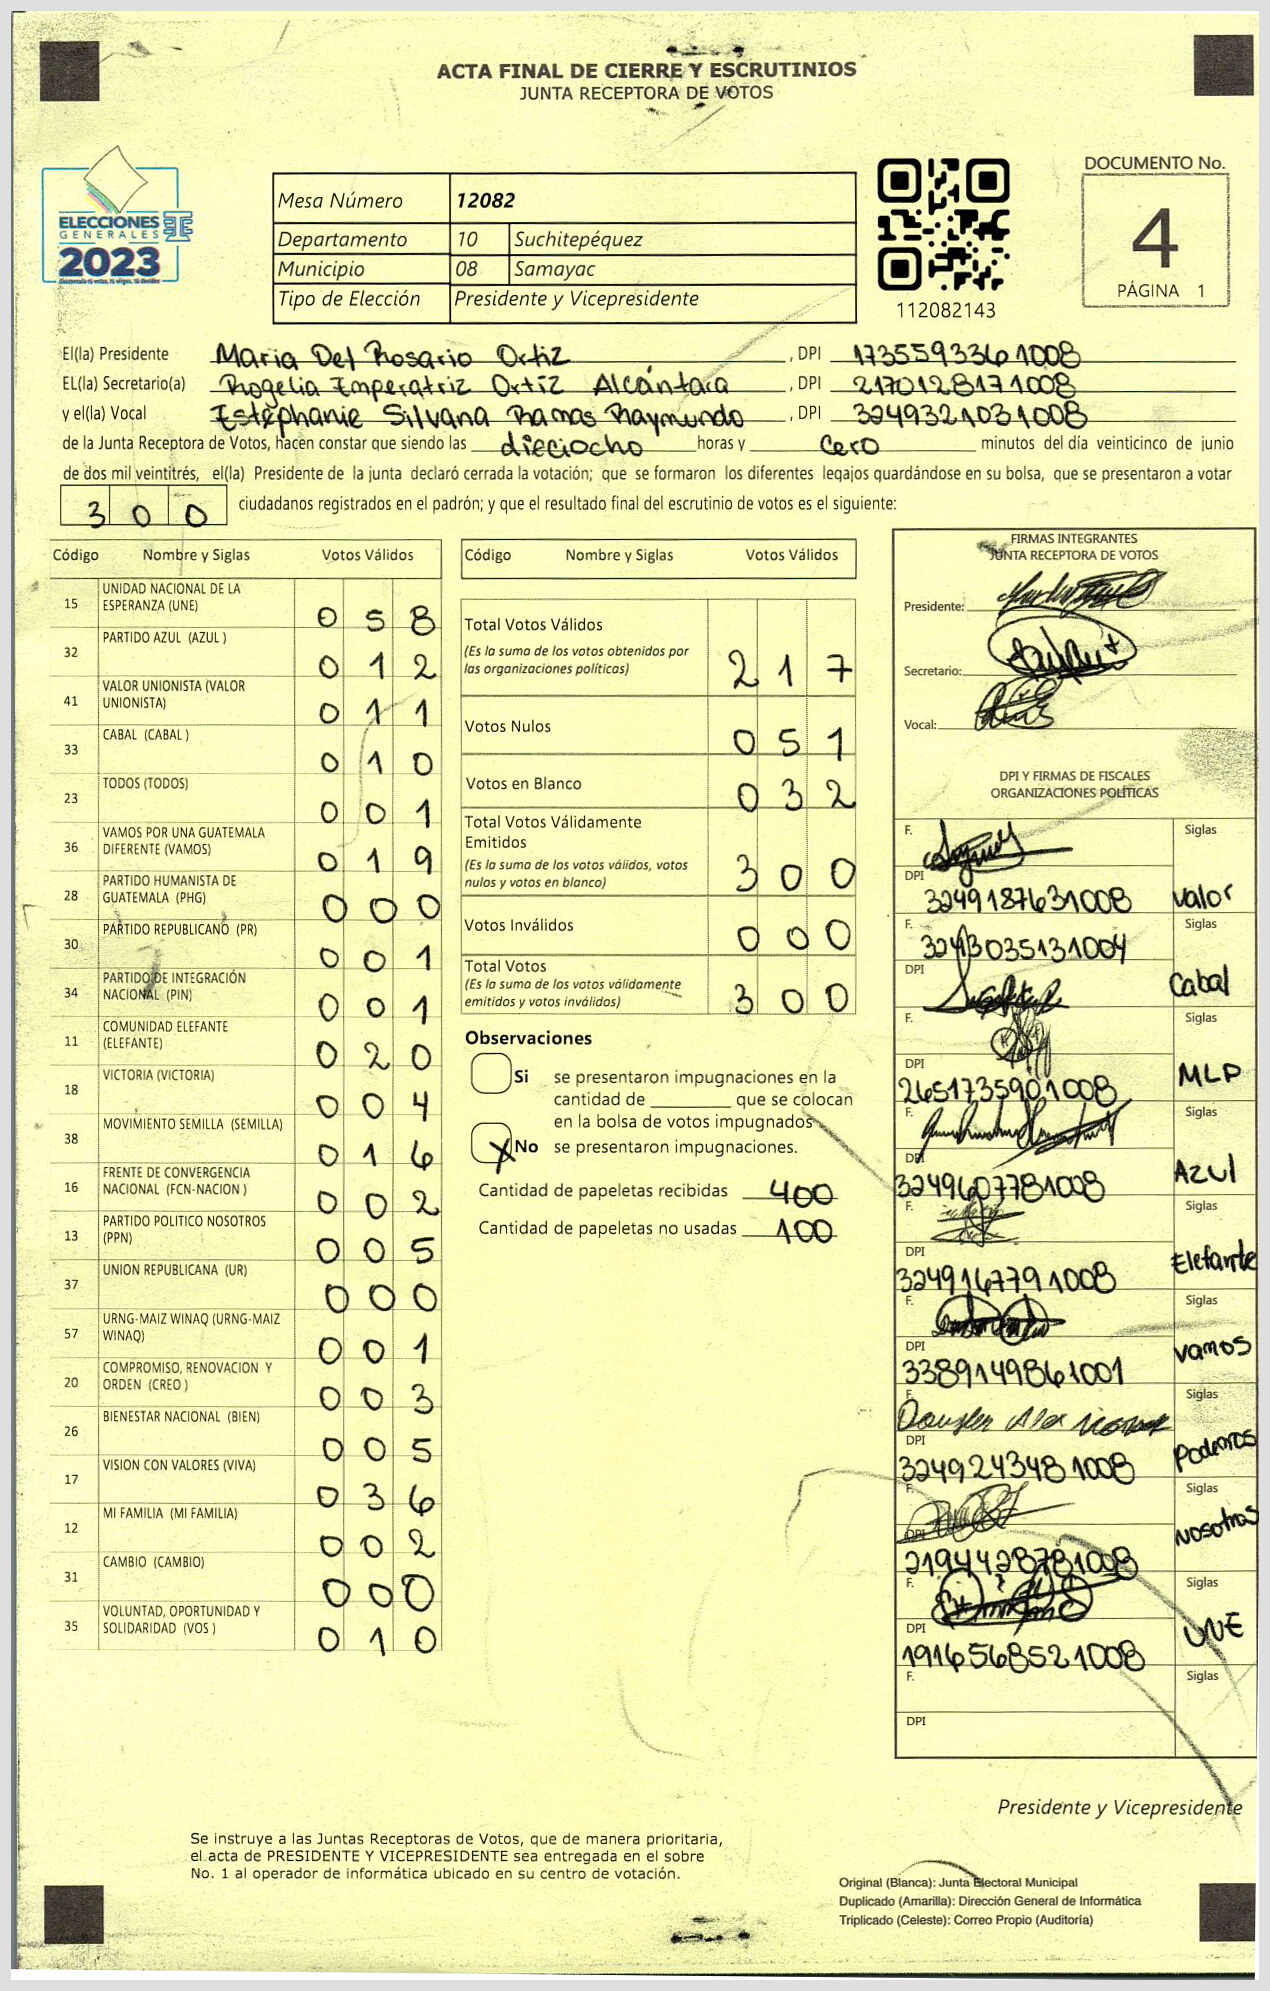 ACTA FINAL DE CIERRE Y ESCRUTINIOS
JUNTA RECEPTORA DE VOTOS
ELECCIONES
GENERALES
2023
Mesa Número 12082
Departamento 10 Suchitepéquez
Municipio 08 Samayac
Tipo de Elección Presidente y Vicepresidente
112082143
DOCUMENTO No.
4
PÁGINA 1
El(la) Presidente Maria Del Rosario Ortiz , DPI 1735593361008
EL(la) Secretario(a) Rogelia Imperatriz Ortíz Alcántara , DPI 2170128171008
y el(la) Vocal Estéphanie Silvana Ramos Raymundo , DPI 3249321031008
de la Junta Receptora de Votos, hacen constar que siendo las dieciocho horas y cero minutos del día veinticinco de junio
de dos mil veintitrés, el(la) Presidente de la junta declaró cerrada la votación; que se formaron los diferentes legajos guardándose en su bolsa, que se presentaron a votar
300 ciudadanos registrados en el padrón; y que el resultado final del escrutinio de votos es el siguiente:
Código Nombre y Siglas Votos Válidos
15 UNIDAD NACIONAL DE LA ESPERANZA (UNE) 058
32 PARTIDO AZUL (AZUL ) 012
41 VALOR UNIONISTA (VALOR UNIONISTA) 011
33 CABAL (CABAL ) 010
23 TODOS (TODOS) 001
36 VAMOS POR UNA GUATEMALA DIFERENTE (VAMOS) 019
28 PARTIDO HUMANISTA DE GUATEMALA (PHG) 000
30 PARTIDO REPUBLICANO (PR) 001
34 PARTIDO DE INTEGRACIÓN NACIONAL (PIN) 001
11 COMUNIDAD ELEFANTE (ELEFANTE) 020
18 VICTORIA (VICTORIA) 004
38 MOVIMIENTO SEMILLA (SEMILLA) 016
16 FRENTE DE CONVERGENCIA NACIONAL (FCN-NACION ) 002
13 PARTIDO POLITICO NOSOTROS (PPN) 005
37 UNION REPUBLICANA (UR) 000
57 URNG-MAIZ WINAQ (URNG-MAIZ WINAQ) 001
20 COMPROMISO, RENOVACION Y ORDEN (CREO ) 003
26 BIENESTAR NACIONAL (BIEN) 005
17 VISION CON VALORES (VIVA) 036
12 MI FAMILIA (MI FAMILIA) 002
31 CAMBIO (CAMBIO) 000
35 VOLUNTAD, OPORTUNIDAD Y SOLIDARIDAD (VOS ) 010
Código Nombre y Siglas Votos Válidos
Total Votos Válidos 217
(Es la suma de los votos obtenidos por
las organizaciones políticas)
Votos Nulos 051
Votos en Blanco 032
Total Votos Válidamente Emitidos 300
(Es la suma de los votos válidos, votos
nulos y votos en blanco)
Votos Inválidos 000
Total Votos 300
(Es la suma de los votos válidamente
emitidos y votos inválidos)
Observaciones
Si se presentaron impugnaciones en la
cantidad de ________ que se colocan
en la bolsa de votos impugnados
X No se presentaron impugnaciones.
Cantidad de papeletas recibidas 400
Cantidad de papeletas no usadas 100
FIRMAS INTEGRANTES
JUNTA RECEPTORA DE VOTOS
Presidente:
Secretario:
Vocal:
DPI Y FIRMAS DE FISCALES
ORGANIZACIONES POLÍTICAS
F. Siglas
DPI 3249187631008 Valor
F. Siglas
DPI Cabal
F. Siglas
DPI 2651735901008 MLP
F. Siglas
DPI 3249607781008 Azul
F. Siglas
DPI 3249167791008 Elefante
F. Siglas
DPI 3389149861001 vamos
F. Siglas
DPI 3249243481008 Podemos
F. Siglas
DPI 2194428781008 Nosotros
F. Siglas
DPI 1916568521008 UNE
F. Siglas
DPI
Presidente y Vicepresidente
Se instruye a las Juntas Receptoras de Votos, que de manera prioritaria,
el acta de PRESIDENTE Y VICEPRESIDENTE sea entregada en el sobre
No. 1 al operador de informática ubicado en su centro de votación.
Original (Blanca): Junta Electoral Municipal
Duplicado (Amarilla): Dirección General de Informática
Triplicado (Celeste): Correo Propio (Auditoría)